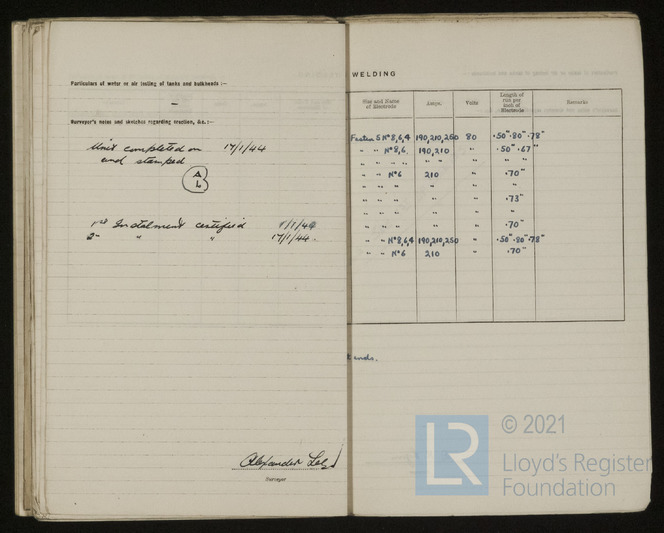 Particulars of water or air testing of tanks and bulkheads :—
—
Surveyor's notes and sketches regarding erection, &c. :—
Unit completed on 17/1/44
and stamped
A
L
1st Instalment certified 8/1/44
2" " " 17/1/44.
Alexander
Surveyor
WELDING
Size and Name of Electrode Amps. Volts Length of run per inch of Electrode Remarks
5 Nº 8,6,4 190,210,250 80 .50" .80" .78"
" " Nº 8,6. 190,210 " .50" .67"
" " " " " " " " "
" " Nº 6 210 " .70"
" " " " " "
" " " " " .73"
" " " " " "
" " " " " .70"
" " Nº 8,4,4 190,210,250 " .50" .80" .78"
" " Nº 6 210 " .70"
ends.
LR
© 2021
Lloyd's Register
Foundation